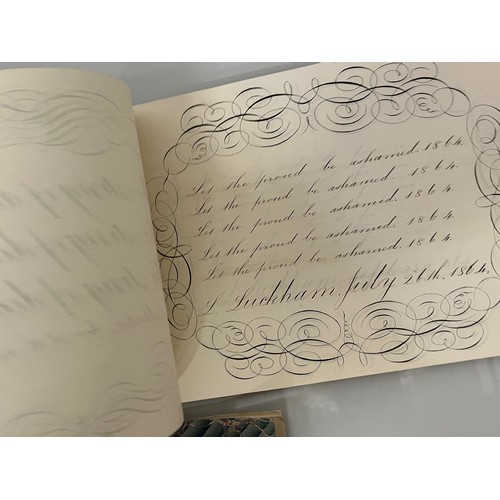 Let the proud be ashamed. 1864.
Let the proud be ashamed. 1864.
Let the proud be ashamed. 1864.
Let the proud be ashamed. 1864.
Let the proud be ashamed. 1864.
L. Luckham, July 26th, 1864,